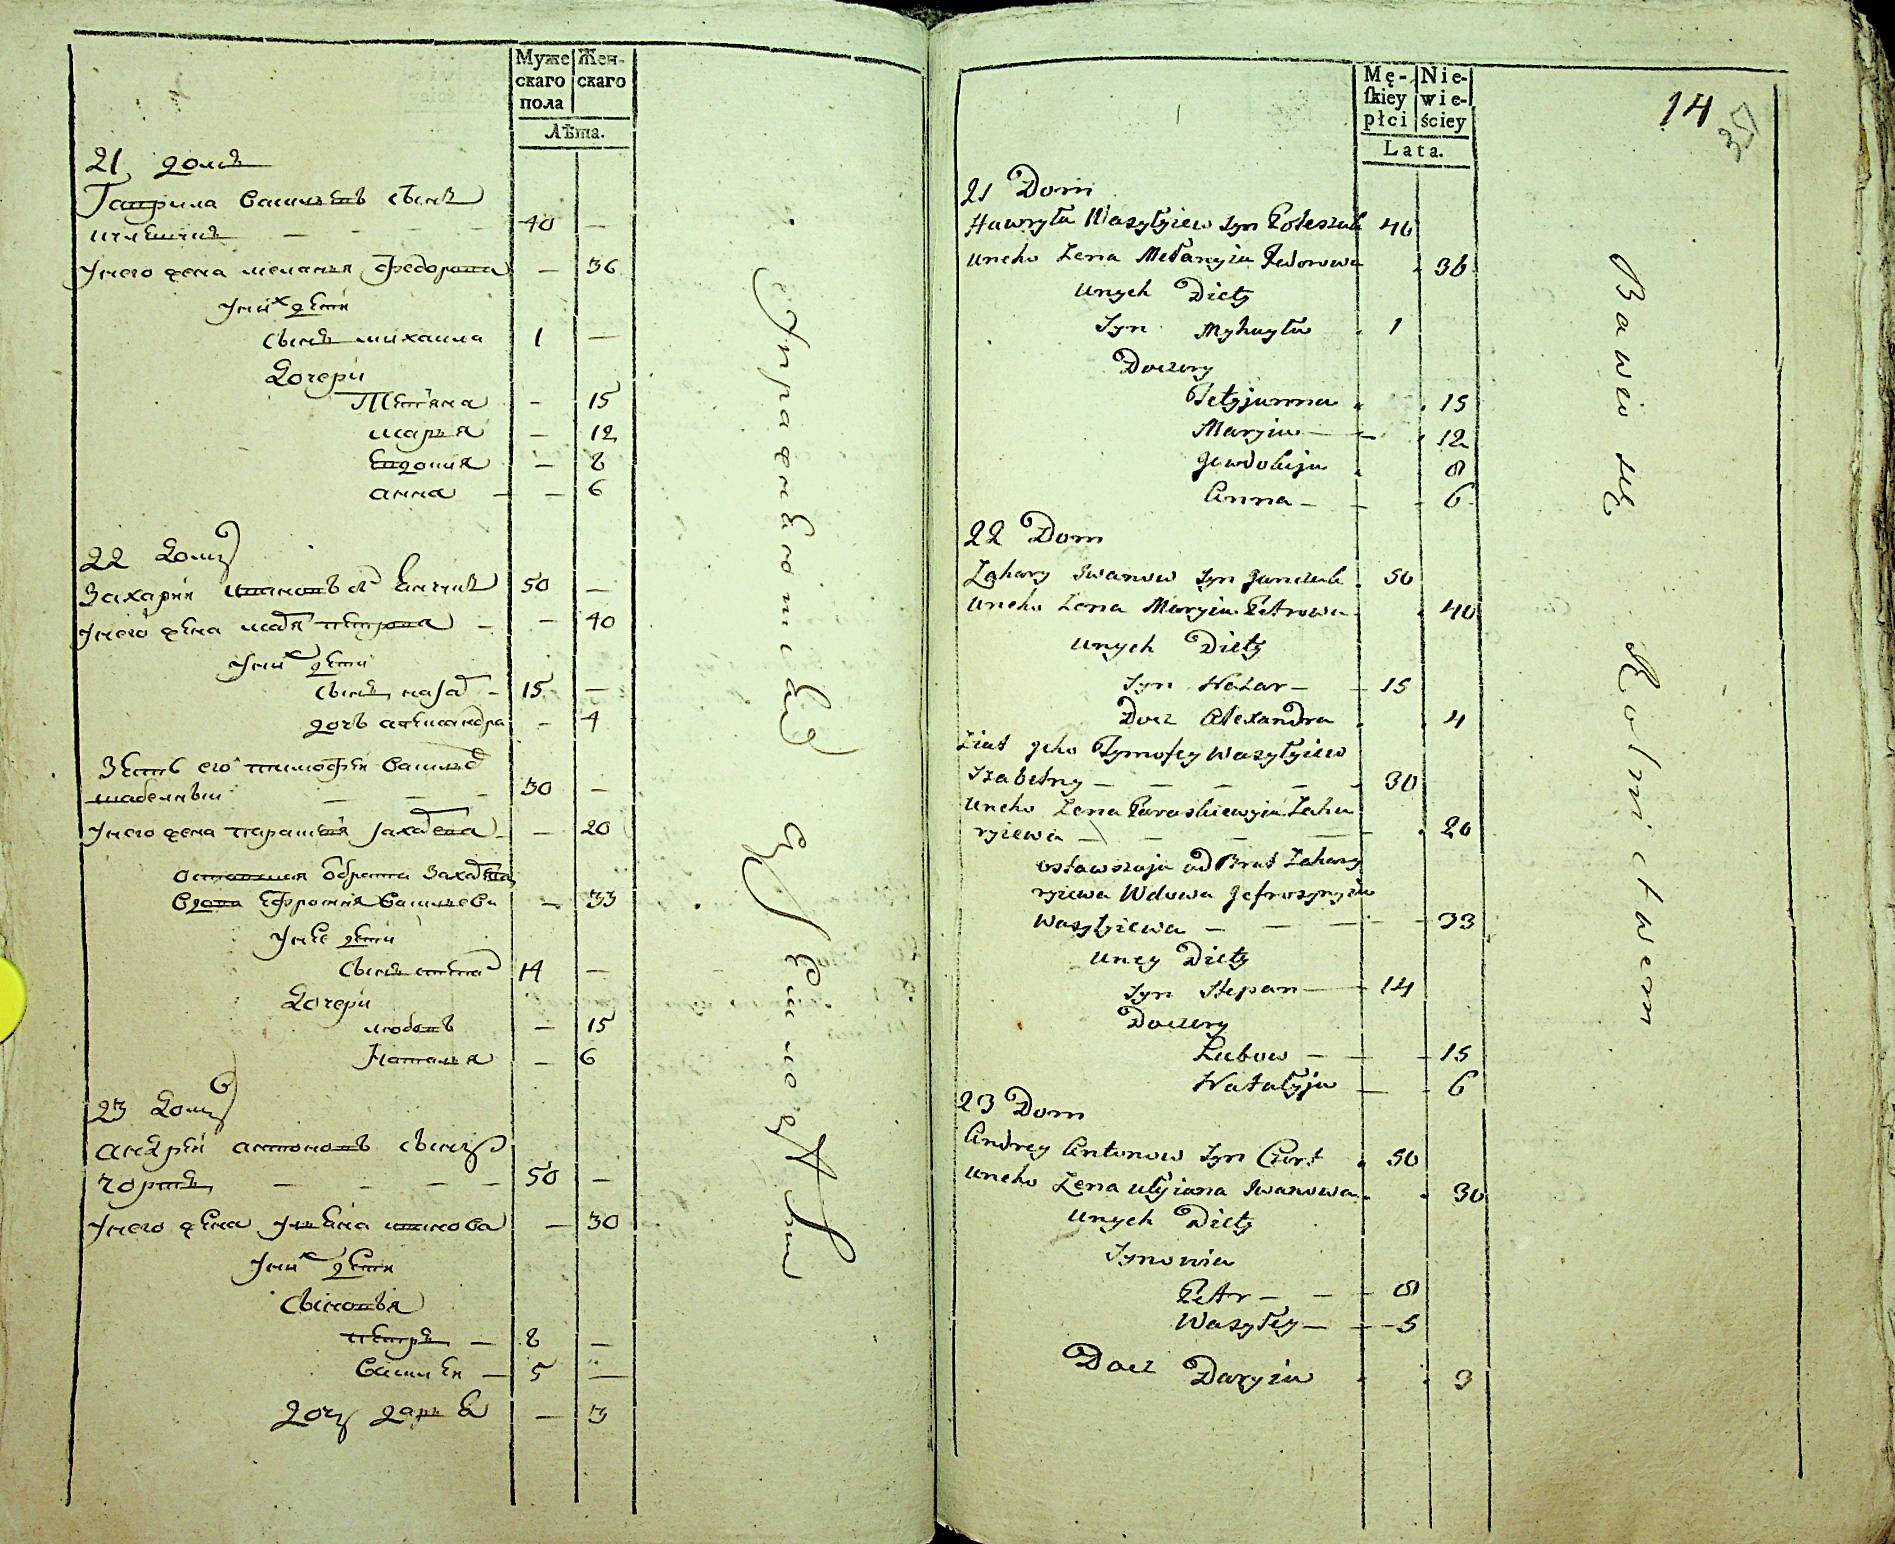 Муже
скаго
пола
Жен-
скаго
Лѣта.
21 домъ
Гаврила Василевъ сынъ
40 —
У него жена Меланья Федорова — 36
У них дети
сынъ Михаила 1 —
Дочери
Тетяна — 15
Марья — 12
Евдокия — 8
Анна — 6
22 Домъ
Захарий Ивановъ 50 —
У него жена Петрова — 40
У них дети
сынъ Назар 15 —
дочь Александра — 4
Зять его Тимофей Василев
шабелный 30 —
У него жена Парасковия Захарева — 20
Оставшая от брата Захарева
вдова Ефросиния Василева — 33
У нее дети
сынъ Степан 14 —
Дочери
Любовь — 15
Наталья — 6
23 Домъ
Андрей Антоновъ сынъ
Чортъ 50 —
У него жена Ульяна Иванова — 30
У них дети
Сыновья
Петръ — 8 —
Василей — 5 —
Дочь Дарья — 3
Упражняются
Мę-
skiey
płci
Nie-
wie-
ściey
Lata.
14
35
21 Dom
Hawryła Wasylyiew Syn Poleszuk 40
Uneho Żena Mełanyia Fedorowa 36
Unych Diety
Syn Myhayła 1
Doczery
Tetyjanna 15
Maryia 12
Jewdokija 8
Anna 6
22 Dom
Zahary Iwanow Syn 50
Uneho Żena Maryia Petrowa 40
Unych Diety
Syn Nazar 15
Docz Alexandra 4
Ziat Jeho Tymofey Wasylyiew
Szabelny 30
Uneho Żena Paraskiewyia Zaha
ryiewa 20
ostawszaja od Brat Zahary
ryiewa Wdowa Jefrosynyia
Wasylyiewa 33
Uney Diety
Syn Stepan 14
Doczery
Lubow 15
Natalyja 6
23 Dom
Andrey Antonow Syn Czort 50
Uneho Żena Ulyiana Iwanowa 30
Unych Diety
Synowia
Petr 8
Wasyley 5
Docz Daryia 3
Bawio się Rolnictwem